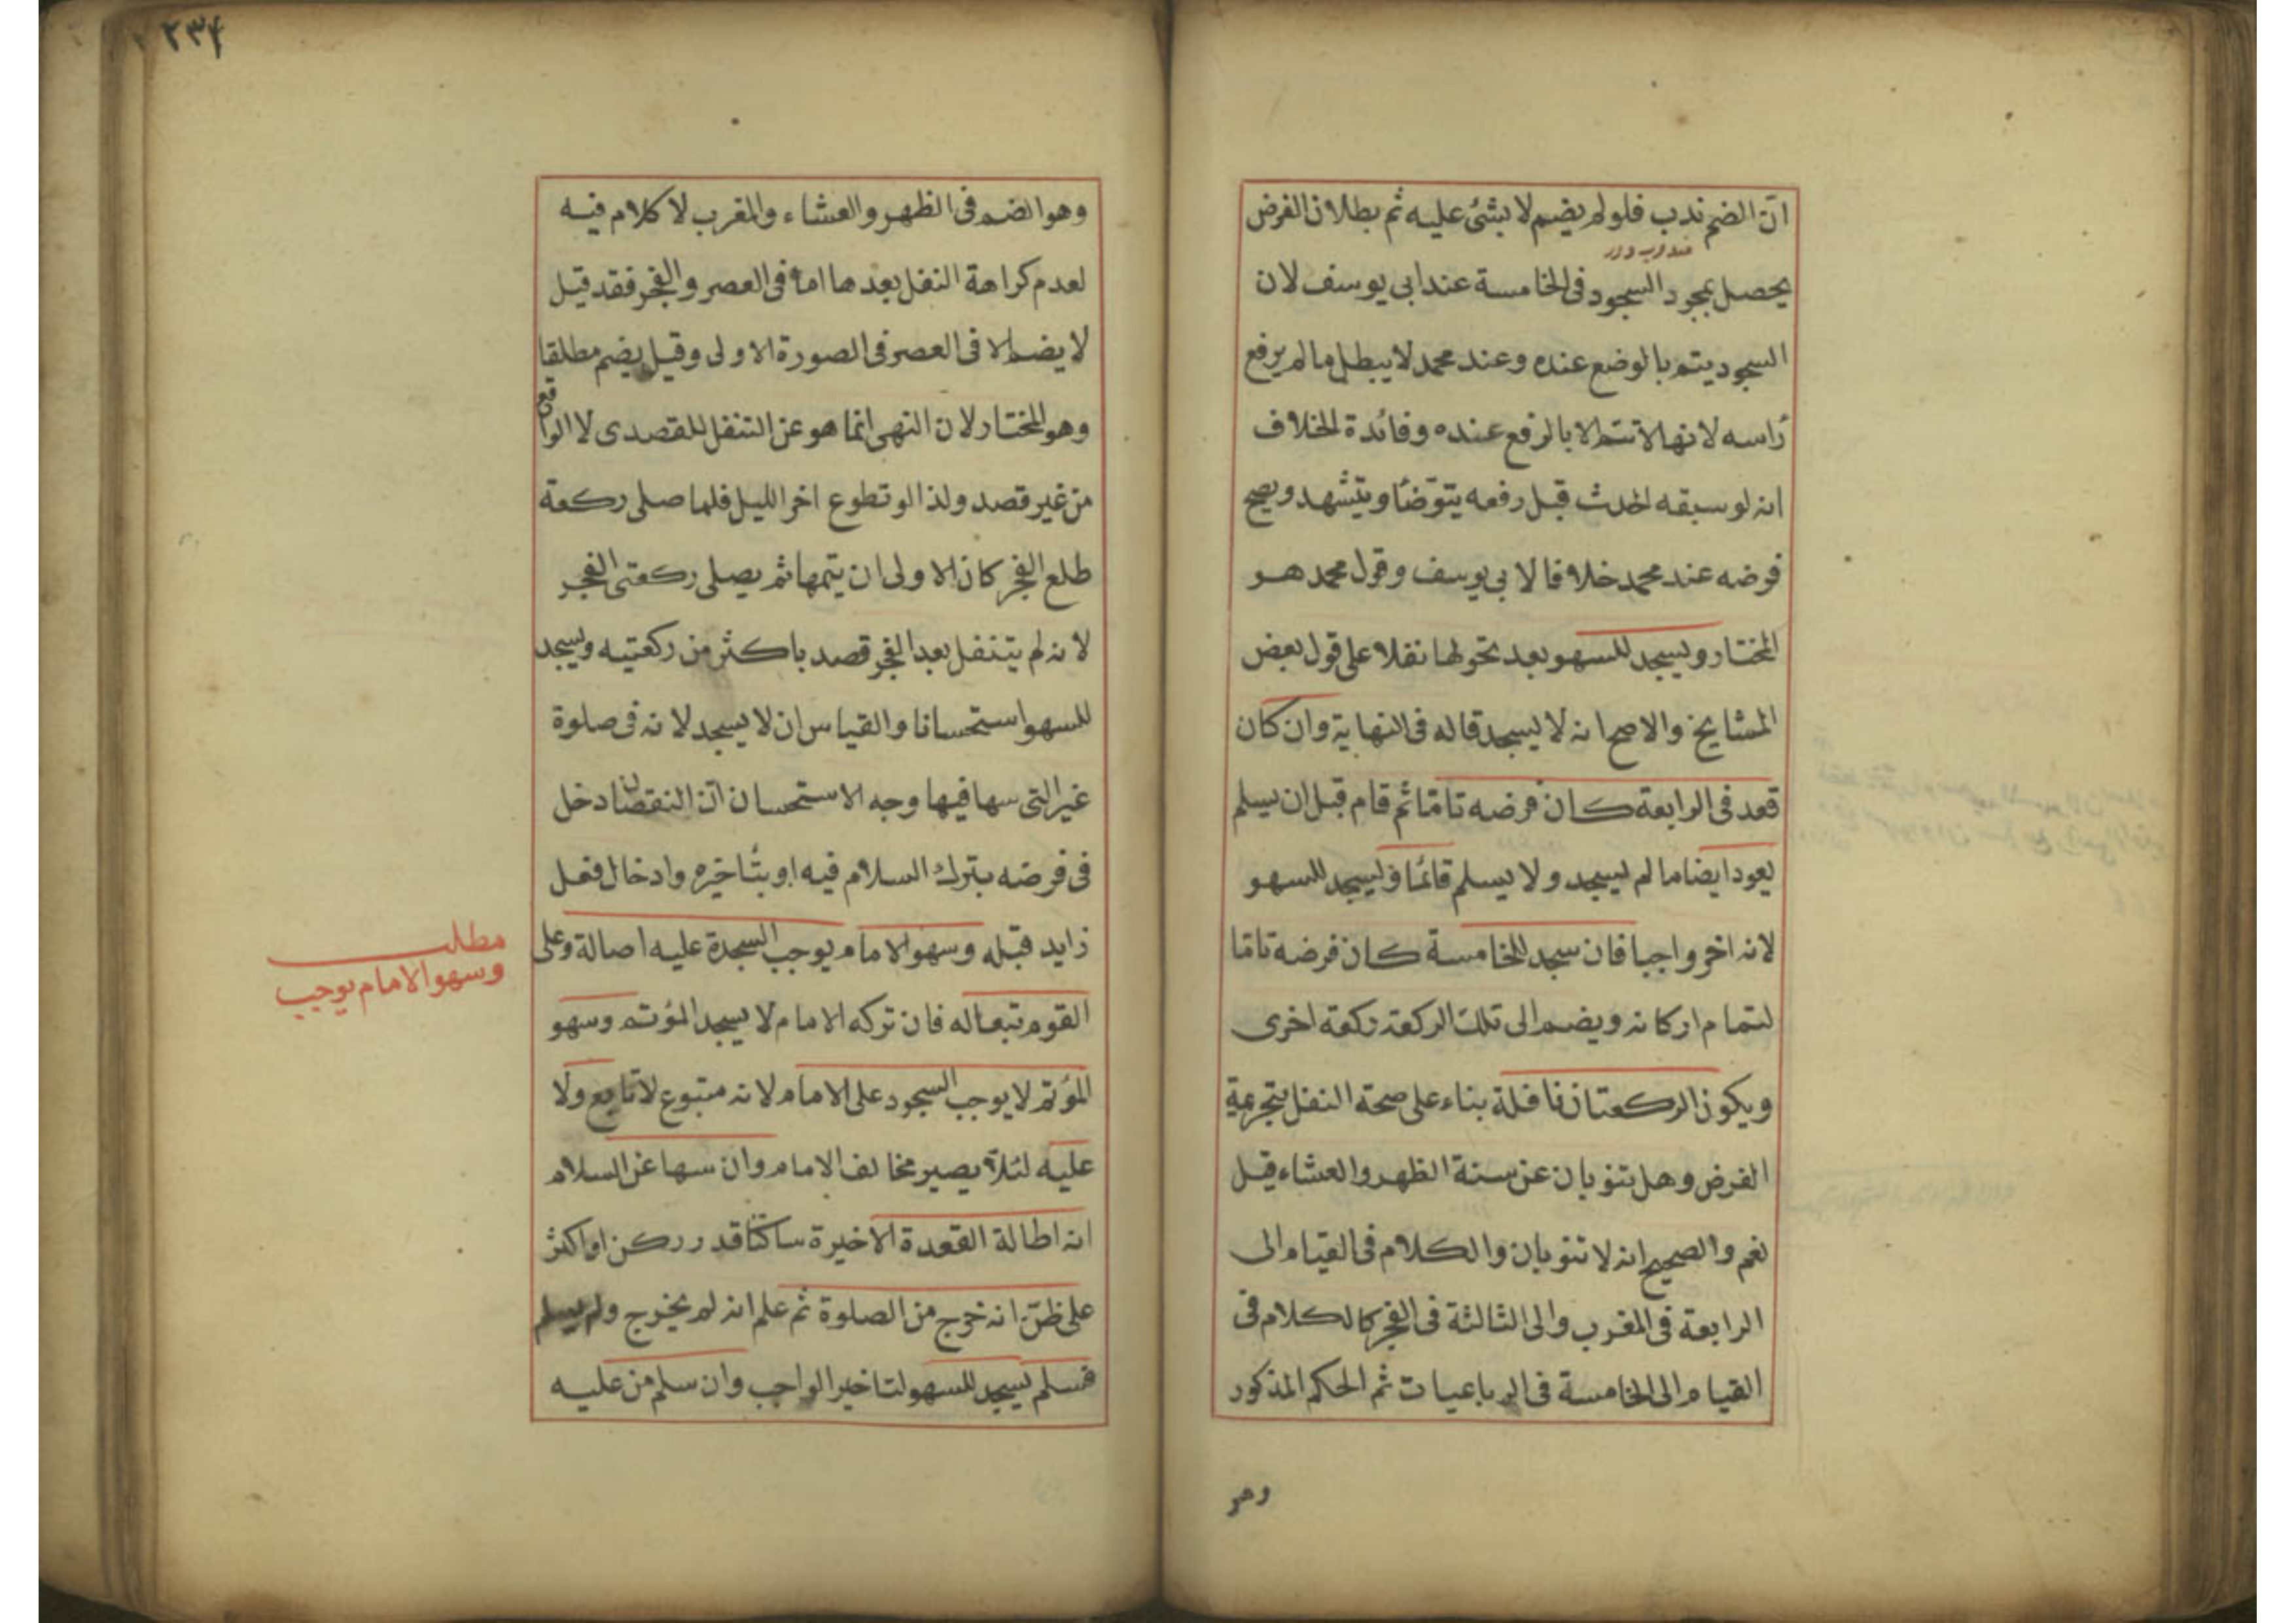 انّ الضم ندب فلو لم يضم لا شئ عليه ثم بطلان الفرض
يحصل بمجرد السجود فى الخامسة عند ابى يوسف لان
السجود يتم بالوضع عنده وعند محمد لا يبطل ما لم يرفع
رأسه لانها لا تتم الا بالرفع عنده وفائدة الخلاف
انه لو سبقه الحدث قبل رفعه يتوضّأ ويتشهد ويصح
فرضه عند محمد خلافا لابى يوسف وقول محمد هو
المختار ويسجد للسهو بعد تحولها نفلا على قول بعض
المشايخ والاصح انه لا يسجد قاله فى النهاية وان كان
قعد فى الرابعة كان فرضه تامّا ثم قام قبل ان يسلم
يعود ايضا ما لم يسجد ولا يسلم قائمًا فيسجد للسهو
لانه اخر واجبا فان سجد للخامسة كان فرضه تامّا
لتمام اركانه ويضم الى تلك الركعة ركعة اخرى
ويكون الركعتان نافلة بناء على صحة النفل بتحريمة
الفرض وهل تنوبان عن سنة الظهر والعشاء قيل
نعم والصحيح انه لا تنوبان والكلام فى القيام الى
الرابعة فى المغرب والى الثالثة فى الفجر كالكلام فى
القيام الى الخامسة فى الرباعيات ثم الحكم المذكور
وهو
٢٣٤
وهو الضم فى الظهر والعشاء والمغرب لا كلام فيه
لعدم كراهة النفل بعدها اما فى العصر والفجر فقد قيل
لا يضم الا فى العصر فى الصورة الاولى وقيل يضم مطلقا
وهو المختار لان النهى انما هو عن التنفل القصدى لا الواقع
من غير قصد ولذا لو تطوع اخر الليل فلما صلى ركعة
طلع الفجر كان الاولى ان يتمها ثم يصلى ركعتى الفجر
لانه لم يتنفل بعد الفجر قصد باكثر من ركعتيه ويسجد
للسهو استحسانا والقياس ان لا يسجد لانه فى صلوة
غير التى سها فيها وجه الاستحسان انّ النقصان دخل
فى فرضه بترك السلام فيه او بتأخيره وادخال فعل
زايد قبله وسهو الامام يوجب السجدة عليه اصالة وعلى
القوم تبعا له فان تركه الامام لا يسجد المؤتم وسهو
المؤتم لا يوجب السجود على الامام لانه متبوع لا تابع ولا
عليه لئلا يصير مخالف الامام وان سها عن السلام
انه اطالة القعدة الاخيرة ساكتًا قدر ركن او اكثر
على ظنّ انه خرج من الصلوة ثم علم انه لم يخرج ولم يسلم
فسلم يسجد للسهو لتاخير الواجب وان سلم من عليه
مطلب
وسهو الامام يوجب